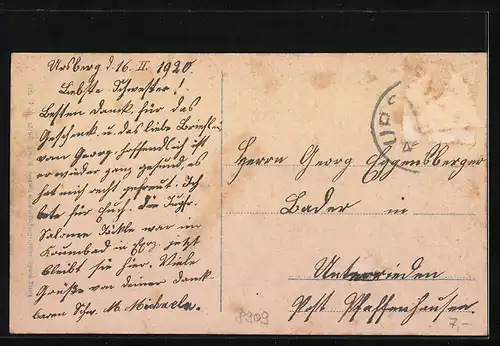 Ursberg d. 16. II. 1920.
Liebste Schwester!
Besten Dank für das
Geschenk u. das liebe Brieflein
vom Georg, hoffendlich ist
er wieder ganz gesund, es
hat mich recht gefreut. Ich
bete für Euch. Die Jugfr.
Salome war im
Krumbad in jetzt
bleibt sie hier. Viele
Grüße von deiner dank-
baren Schw. M. Michaela.
URS
Herrn Georg Eggensberger
Bader in
Unterrieden
Post Pfaffenhausen.
8909
7,-